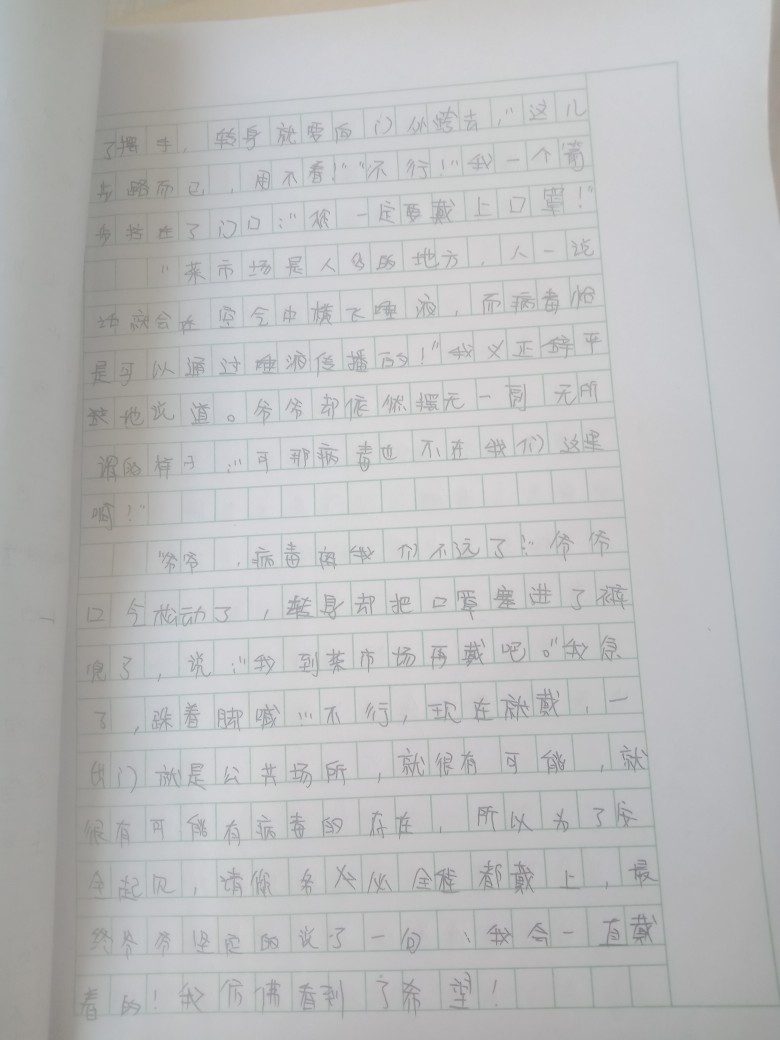 了摆手，转身就要向门外跨去，“这儿
步路而已，用不着！”“不行！”我一个箭
步挡在了门口：“爷一定要戴上口罩！”
“菜市场是人多的地方，人一说
话就会在空气中横飞唾液，而病毒恰
是可以通过唾液传播的！”我义正辞平
地说道。爷爷却依然摆无一副无所
谓的样子：“可那病毒也不在我们这里
啊！”
“爷爷，病毒离我们不远了！”爷爷
口气松动了，转身却把口罩塞进了裤
兜了，说：“我到菜市场再戴吧。”我急
了，跺着脚喊：“不行，现在就戴，一
出门就是公共场所，就很有可能，就
很有可能有病毒的存在，所以为了安
全起见，请你务必全程都戴上，最
终爷爷坚定的说了一句、我会一直戴
着的！我仿佛看到了希望！